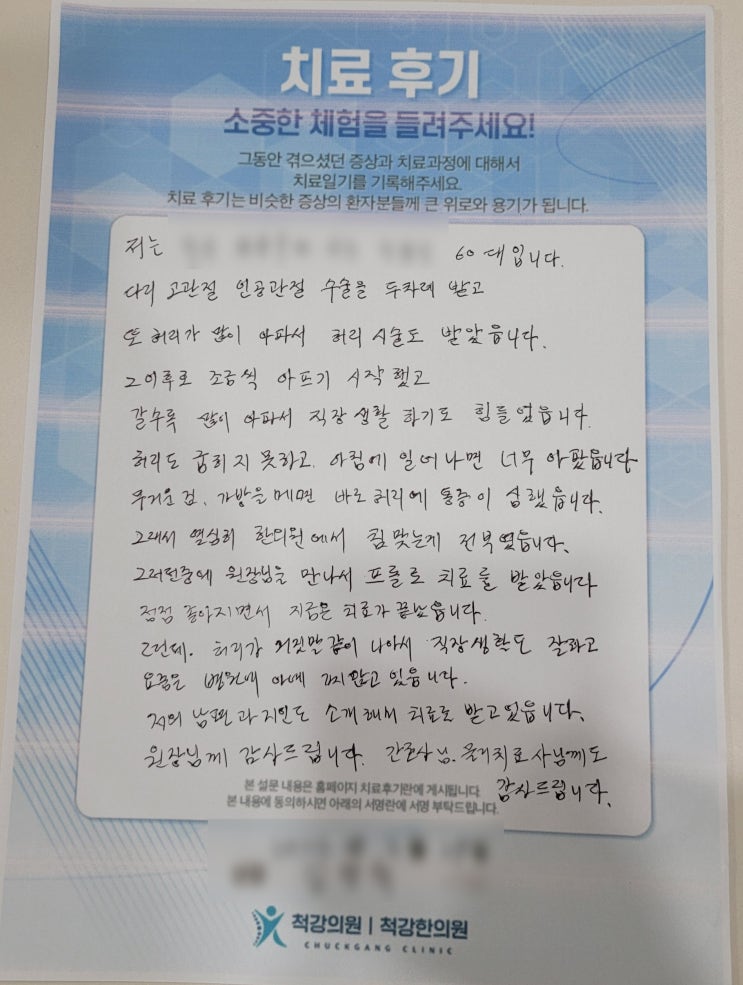 치료 후기
소중한 체험을 들려주세요!
그동안 겪으셨던 증상과 치료과정에 대해서
치료일기를 기록해주세요.
치료 후기는 비슷한 증상의 환자분들께 큰 위로와 용기가 됩니다.
저는 60대입니다.
다리 고관절 인공관절 수술을 두차례 받고
또 허리가 많이 아파서 허리 시술도 받았읍니다.
그이후로 조금씩 아프기 시작했고
갈수록 많이 아파서 직장 생활 하기도 힘들었읍니다.
허리도 굽히지 못하고. 아침에 일어나면 너무 아팠읍니다
무거운 것. 가방을 메면 바로 허리에 통증이 심했읍니다.
그래서 열심히 한의원에서 침 맞는게 전부였읍니다.
그러던중에 원장님을 만나서 프롤로 치료를 받았읍니다
점점 좋아지면서 지금은 치료가 끝났읍니다.
그런데. 허리가 거짓말 같이 나아서 직장생활도 잘하고
요즘은 병원에 아예 가지 않고 있읍니다.
저의 남편과 지인도 소개해서 치료로 받고 있읍니다.
원장님께 감사드립니다. 간호사님. 물리치료사님께도
감사드립니다.
본 설문 내용은 홈페이지 치료후기란에 게시됩니다.
본 내용에 동의하시면 아래의 서명란에 서명 부탁드립니다.
척강의원 | 척강한의원
CHUCKGANG CLINIC